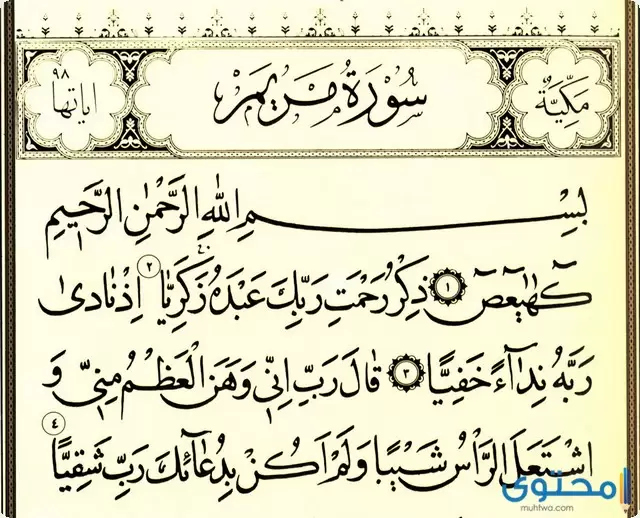 مَكِّيَّةٌ
سُورَةُ مَرْيَمَ
اياتها ٩٨
بِسْمِ اللهِ الرَّحْمٰنِ الرَّحِيمِ
كٓهٰيٰعٓصٓ ١ ذِكْرُ رَحْمَتِ رَبِّكَ عَبْدَهُ زَكَرِيَّا ٢ اِذْ نَادىٰ
رَبَّهُ نِدَٓاءً خَفِيًّا ٣ قَالَ رَبِّ اِنّ۪ي وَهَنَ الْعَظْمُ مِنّ۪ي وَ
اشْتَعَلَ الرَّاْسُ شَيْبًا وَلَمْ اَكُنْ بِدُعَٓائِكَ رَبِّ شَقِيًّا ٤
محتوى
muhtwa.com